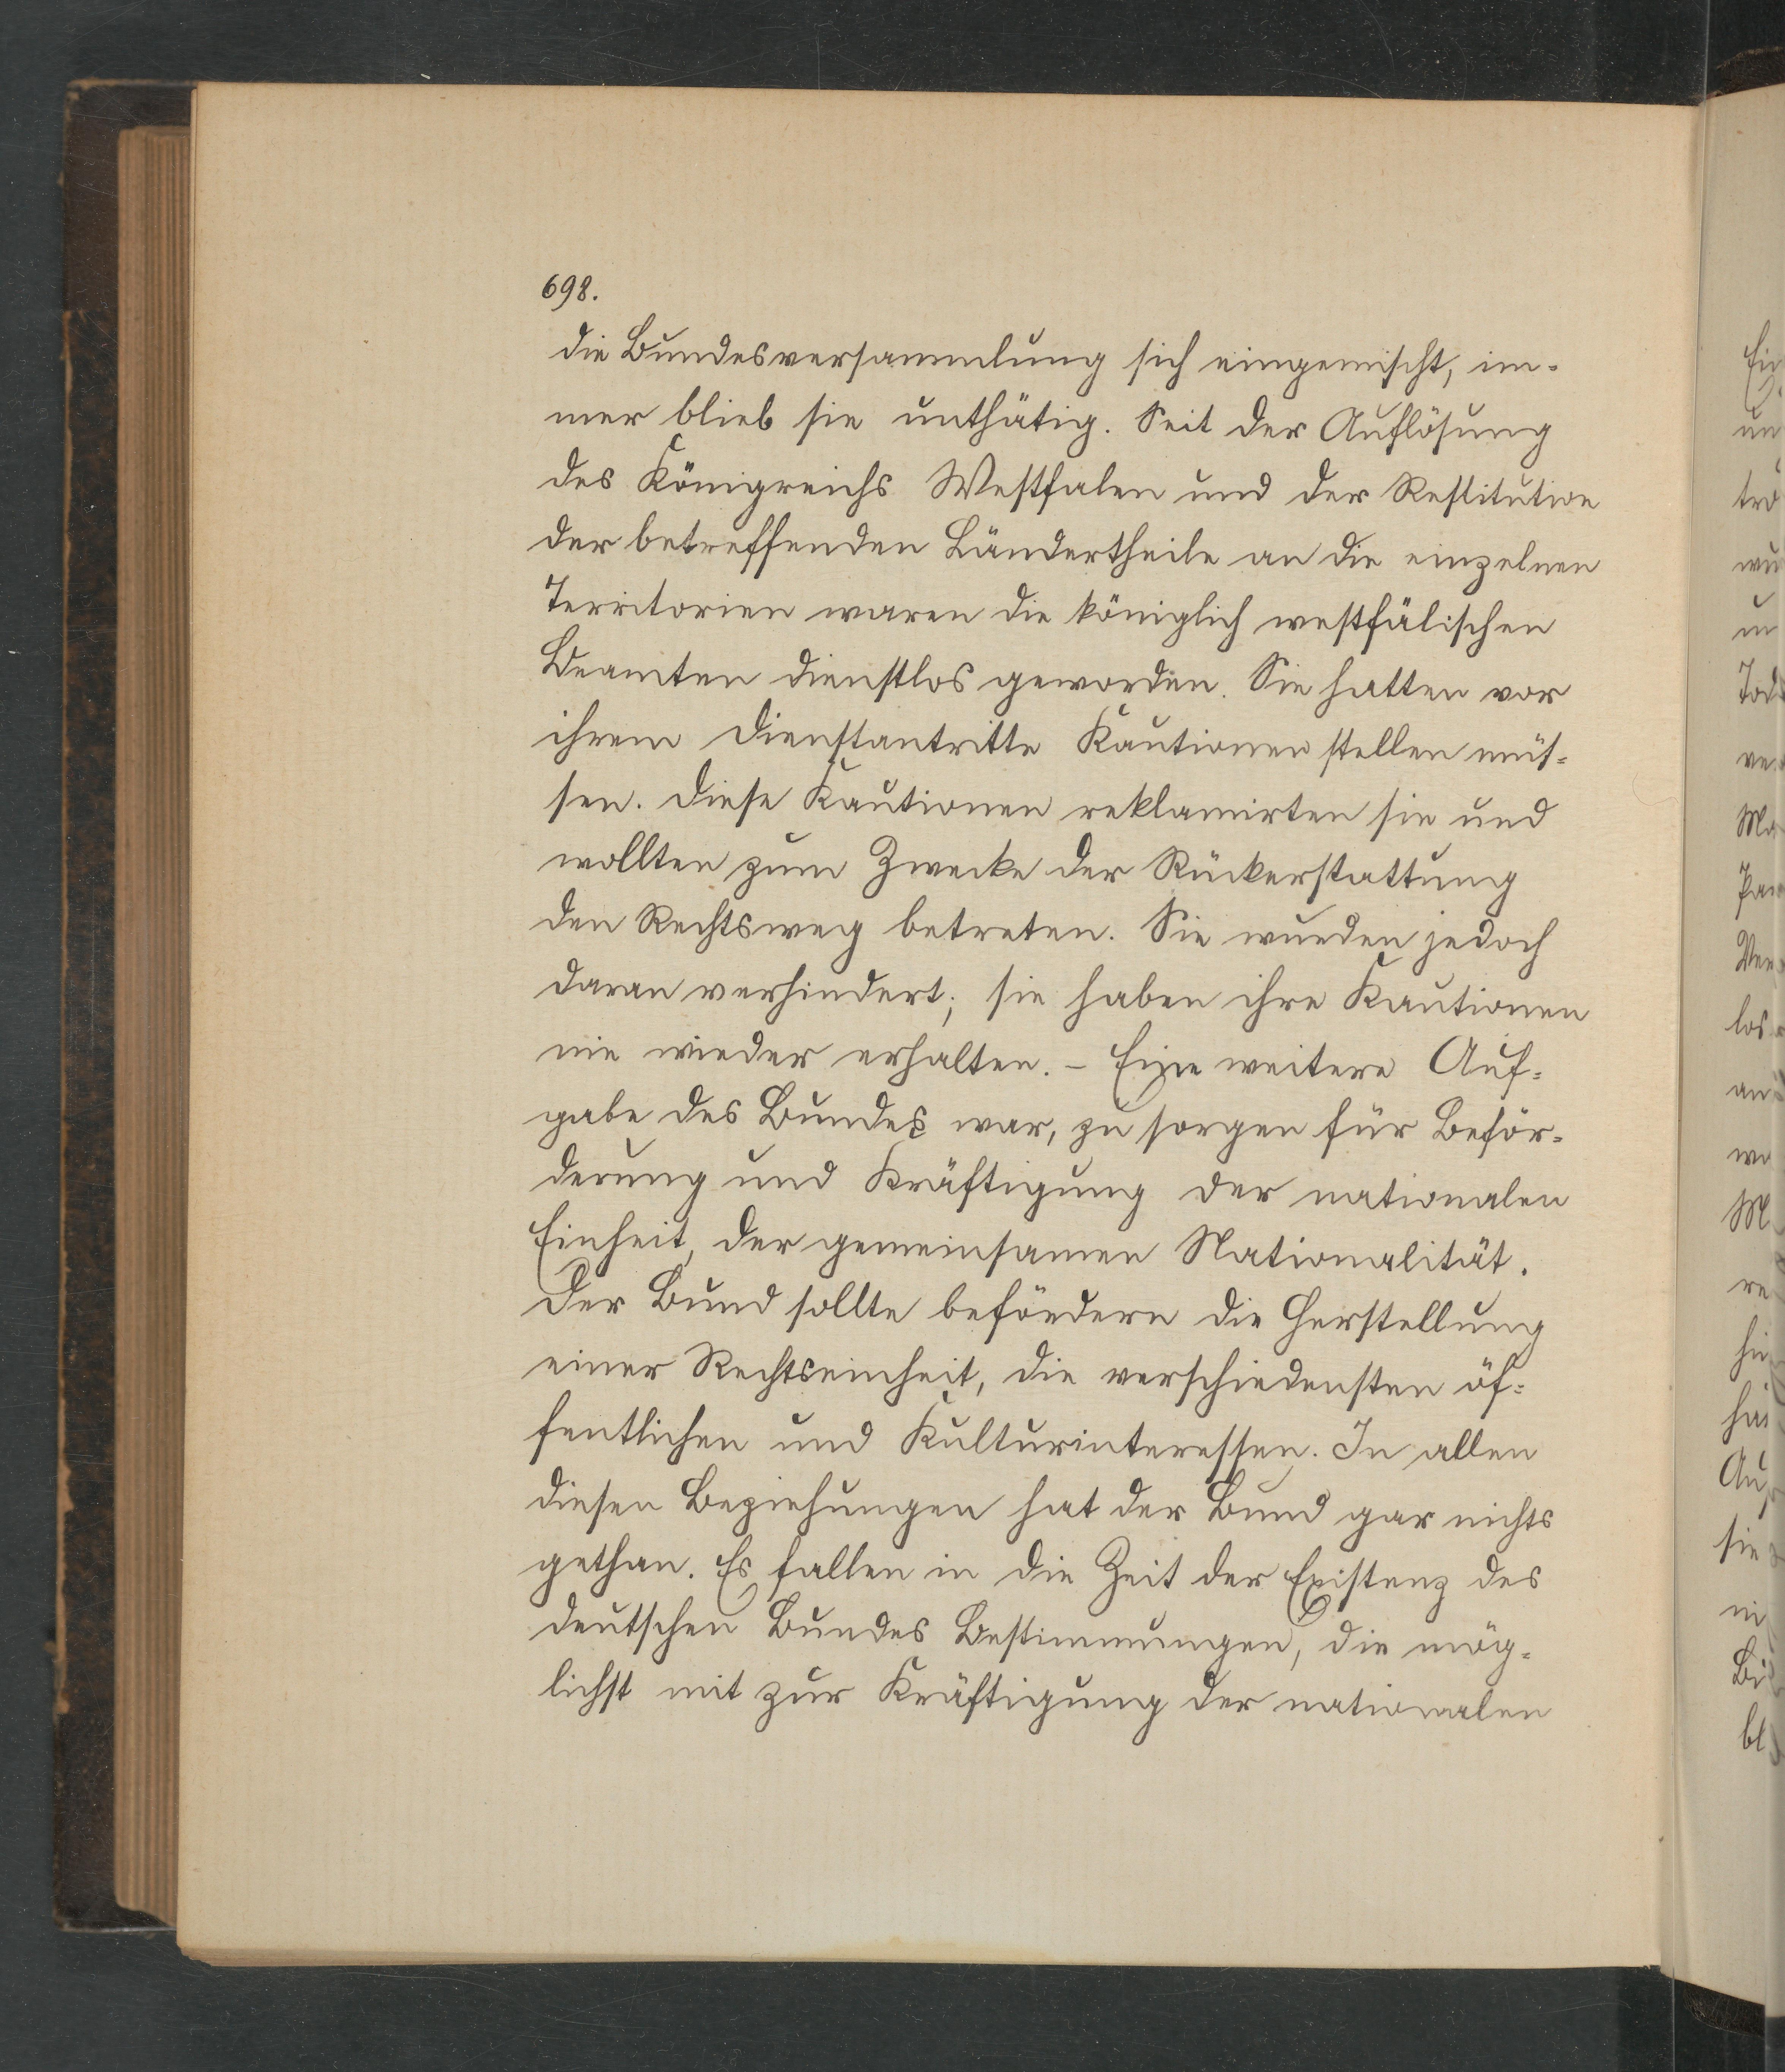 698.
die Bundesversammlung sich eingemischt, im-
mer blieb sie unthätig. Seit der Auflösung
des Königreichs Westfalen und der Restitution
der betreffenden Ländertheile an die einzelnen
Territorien waren die königlich westfälischen
Beamten dienstlos geworden. Sie hatten vor
ihrem Dienstantritte Kautionen stellen müs-
sen. Diese Kautionen reklamirten sie und
wollten zum Zwecke der Rückerstattung
den Rechtsweg betreten. Sie wurden jedoch
daran verhindert; sie haben ihre Kautionen
nie wieder erhalten. – Eine weitere Auf-
gabe des Bundes war, zu sorgen für Beför-
derung und Kräftigung der nationalen
Einheit, der gemeinsamen Nationalität.
Der Bund sollte befördern die Herstellung
einer Rechtseinheit, die verschiedensten öf-
fentlichen und Kulturinteressen. In allen
diesen Beziehungen hat der Bund gar nichts
gethan. Es fallen in die Zeit der Existenz des
deutschen Bundes Bestimmungen, die mög-
lichst mit zur Kräftigung der nationalen